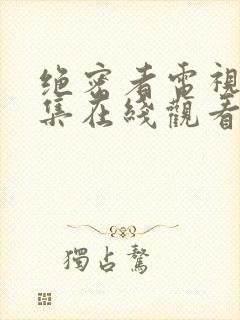 绝密者電視
集在綫觀看
獨占鰲